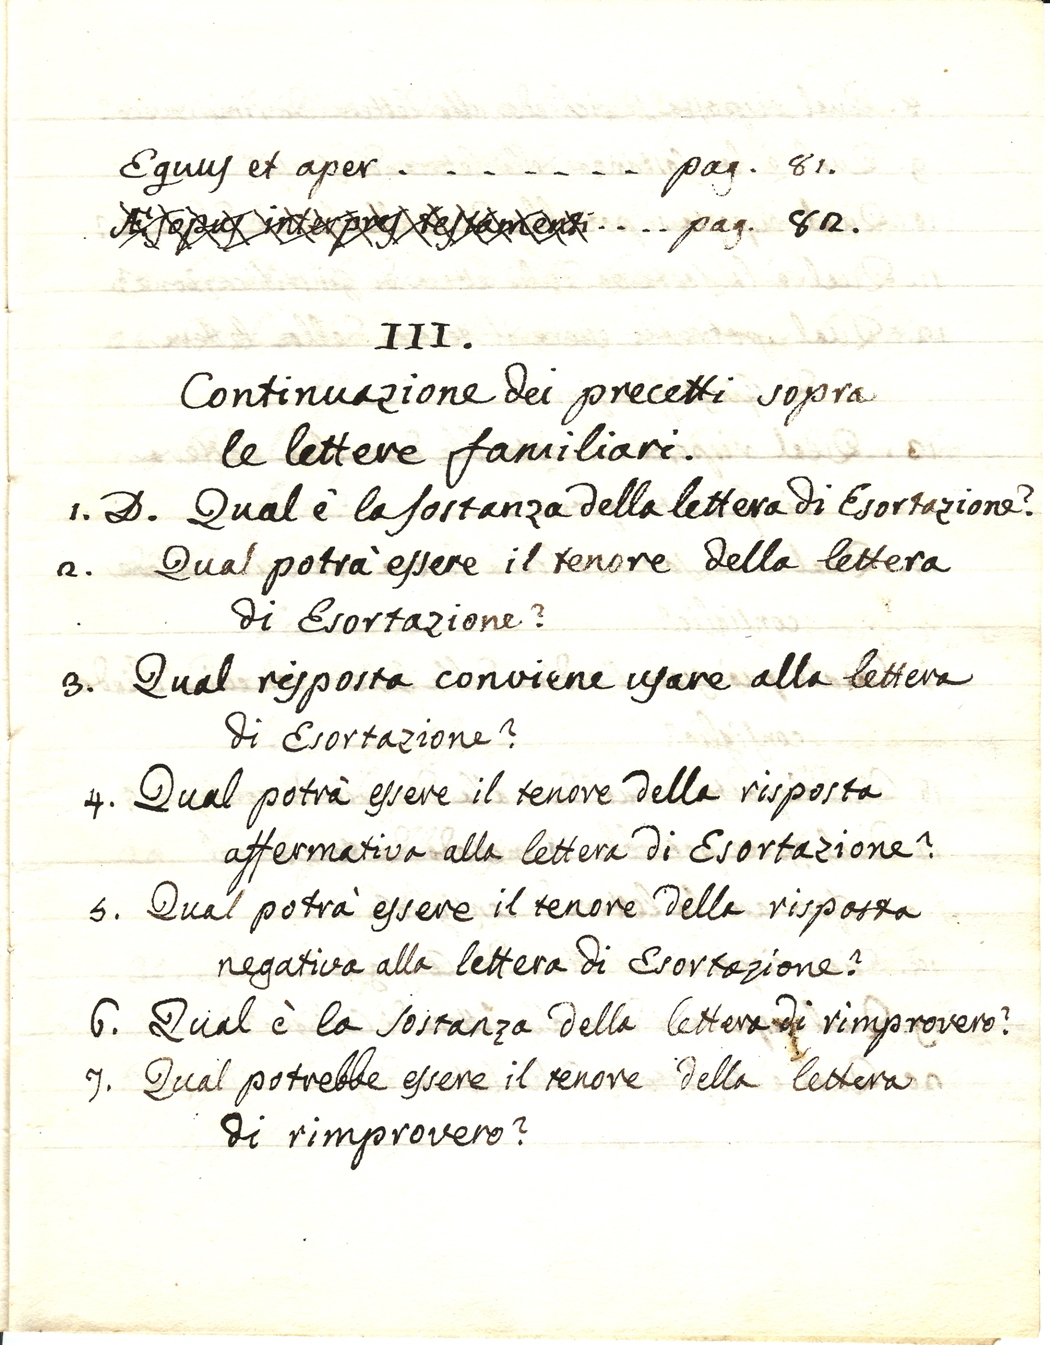 Equus et aper . . . . . . . . pag. 81.
Æsopus interpres testamenti . . . . pag. 82.
III.
Continuazione dei precetti sopra
le lettere familiari.
1. D. Qual è la sostanza della lettera di Esortazione?
2. Qual potrà essere il tenore della lettera
di Esortazione?
3. Qual risposta conviene usare alla lettera
di Esortazione?
4. Qual potrà essere il tenore della risposta
affermativa alla lettera di Esortazione?
5. Qual potrà essere il tenore della risposta
negativa alla lettera di Esortazione?
6. Qual è la sostanza della lettera di rimprovero?
7. Qual potrebbe essere il tenore della lettera
di rimprovero?